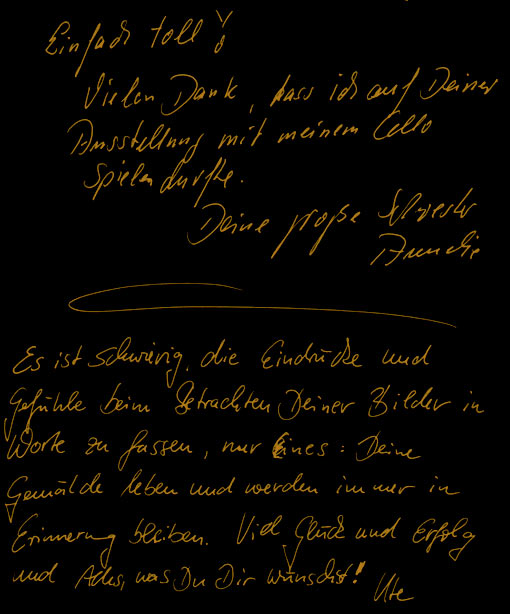 Einfach toll!
Vielen Dank, dass ich auf Deiner
Ausstellung mit meinem Cello
spielen durfte.
Deine große Schwester
Es ist schwierig, die Eindrücke und
Gefühle beim Betrachten Deiner Bilder in
Worte zu fassen, nur Eines: Deine
Gemälde leben und werden immer in
Erinnerung bleiben. Viel Glück und Erfolg
und Alles, was Du Dir wünschst!
Ute